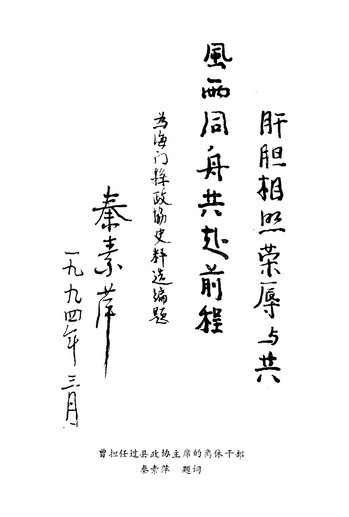 肝胆相照荣辱与共
風雨同舟共赴前程
为海门县政协史料选编题
秦素萍
一九九四年三月
曾担任过县政协主席的离休干部
秦素萍 题词